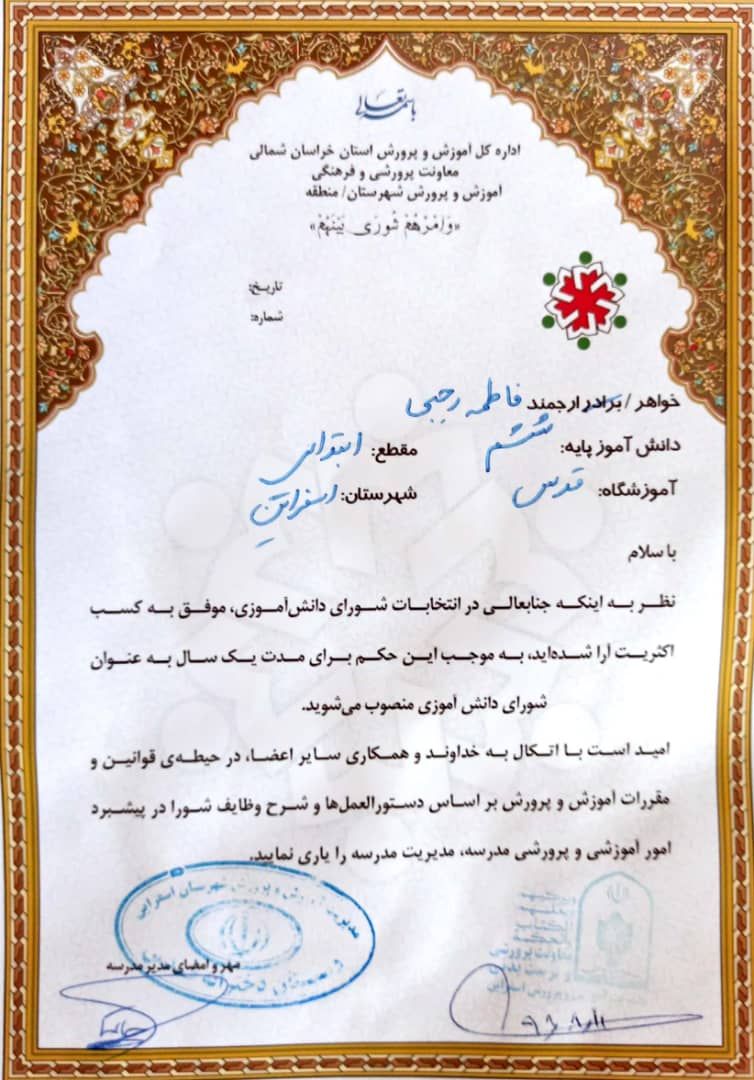 باسمه تعالی
اداره کل آموزش و پرورش استان خراسان شمالی
معاونت پرورشی و فرهنگی
آموزش و پرورش شهرستان/ منطقه
«وَ اَمْرُهُمْ شُورَی بَیْنَهُمْ»
تاریخ:
شماره:
خواهر / برادر ارجمند فاطمه رجبی
دانش آموز پایه: ششم مقطع: ابتدایی
آموزشگاه: قدس شهرستان: اسفراین
با سلام
نظر به اینکه جنابعالی در انتخابات شورای دانش‌آموزی، موفق به کسب
اکثریت آرا شده‌اید، به موجب این حکم برای مدت یک سال به عنوان
شورای دانش آموزی منصوب می‌شوید.
امید است با اتکال به خداوند و همکاری سایر اعضا، در حیطه‌ی قوانین و
مقررات آموزش و پرورش بر اساس دستورالعمل‌ها و شرح وظایف شورا در پیشبرد
امور آموزشی و پرورشی مدرسه، مدیریت مدرسه را یاری نمایید.
یزکیهم
یعلمهم
الکتاب
والحکمه
معاونت پرورشی
و تربیت بدنی
مدیریت آموزش و پرورش شهرستان اسفراین
دبستان دخترانه
مهر و امضای مدیر مدرسه